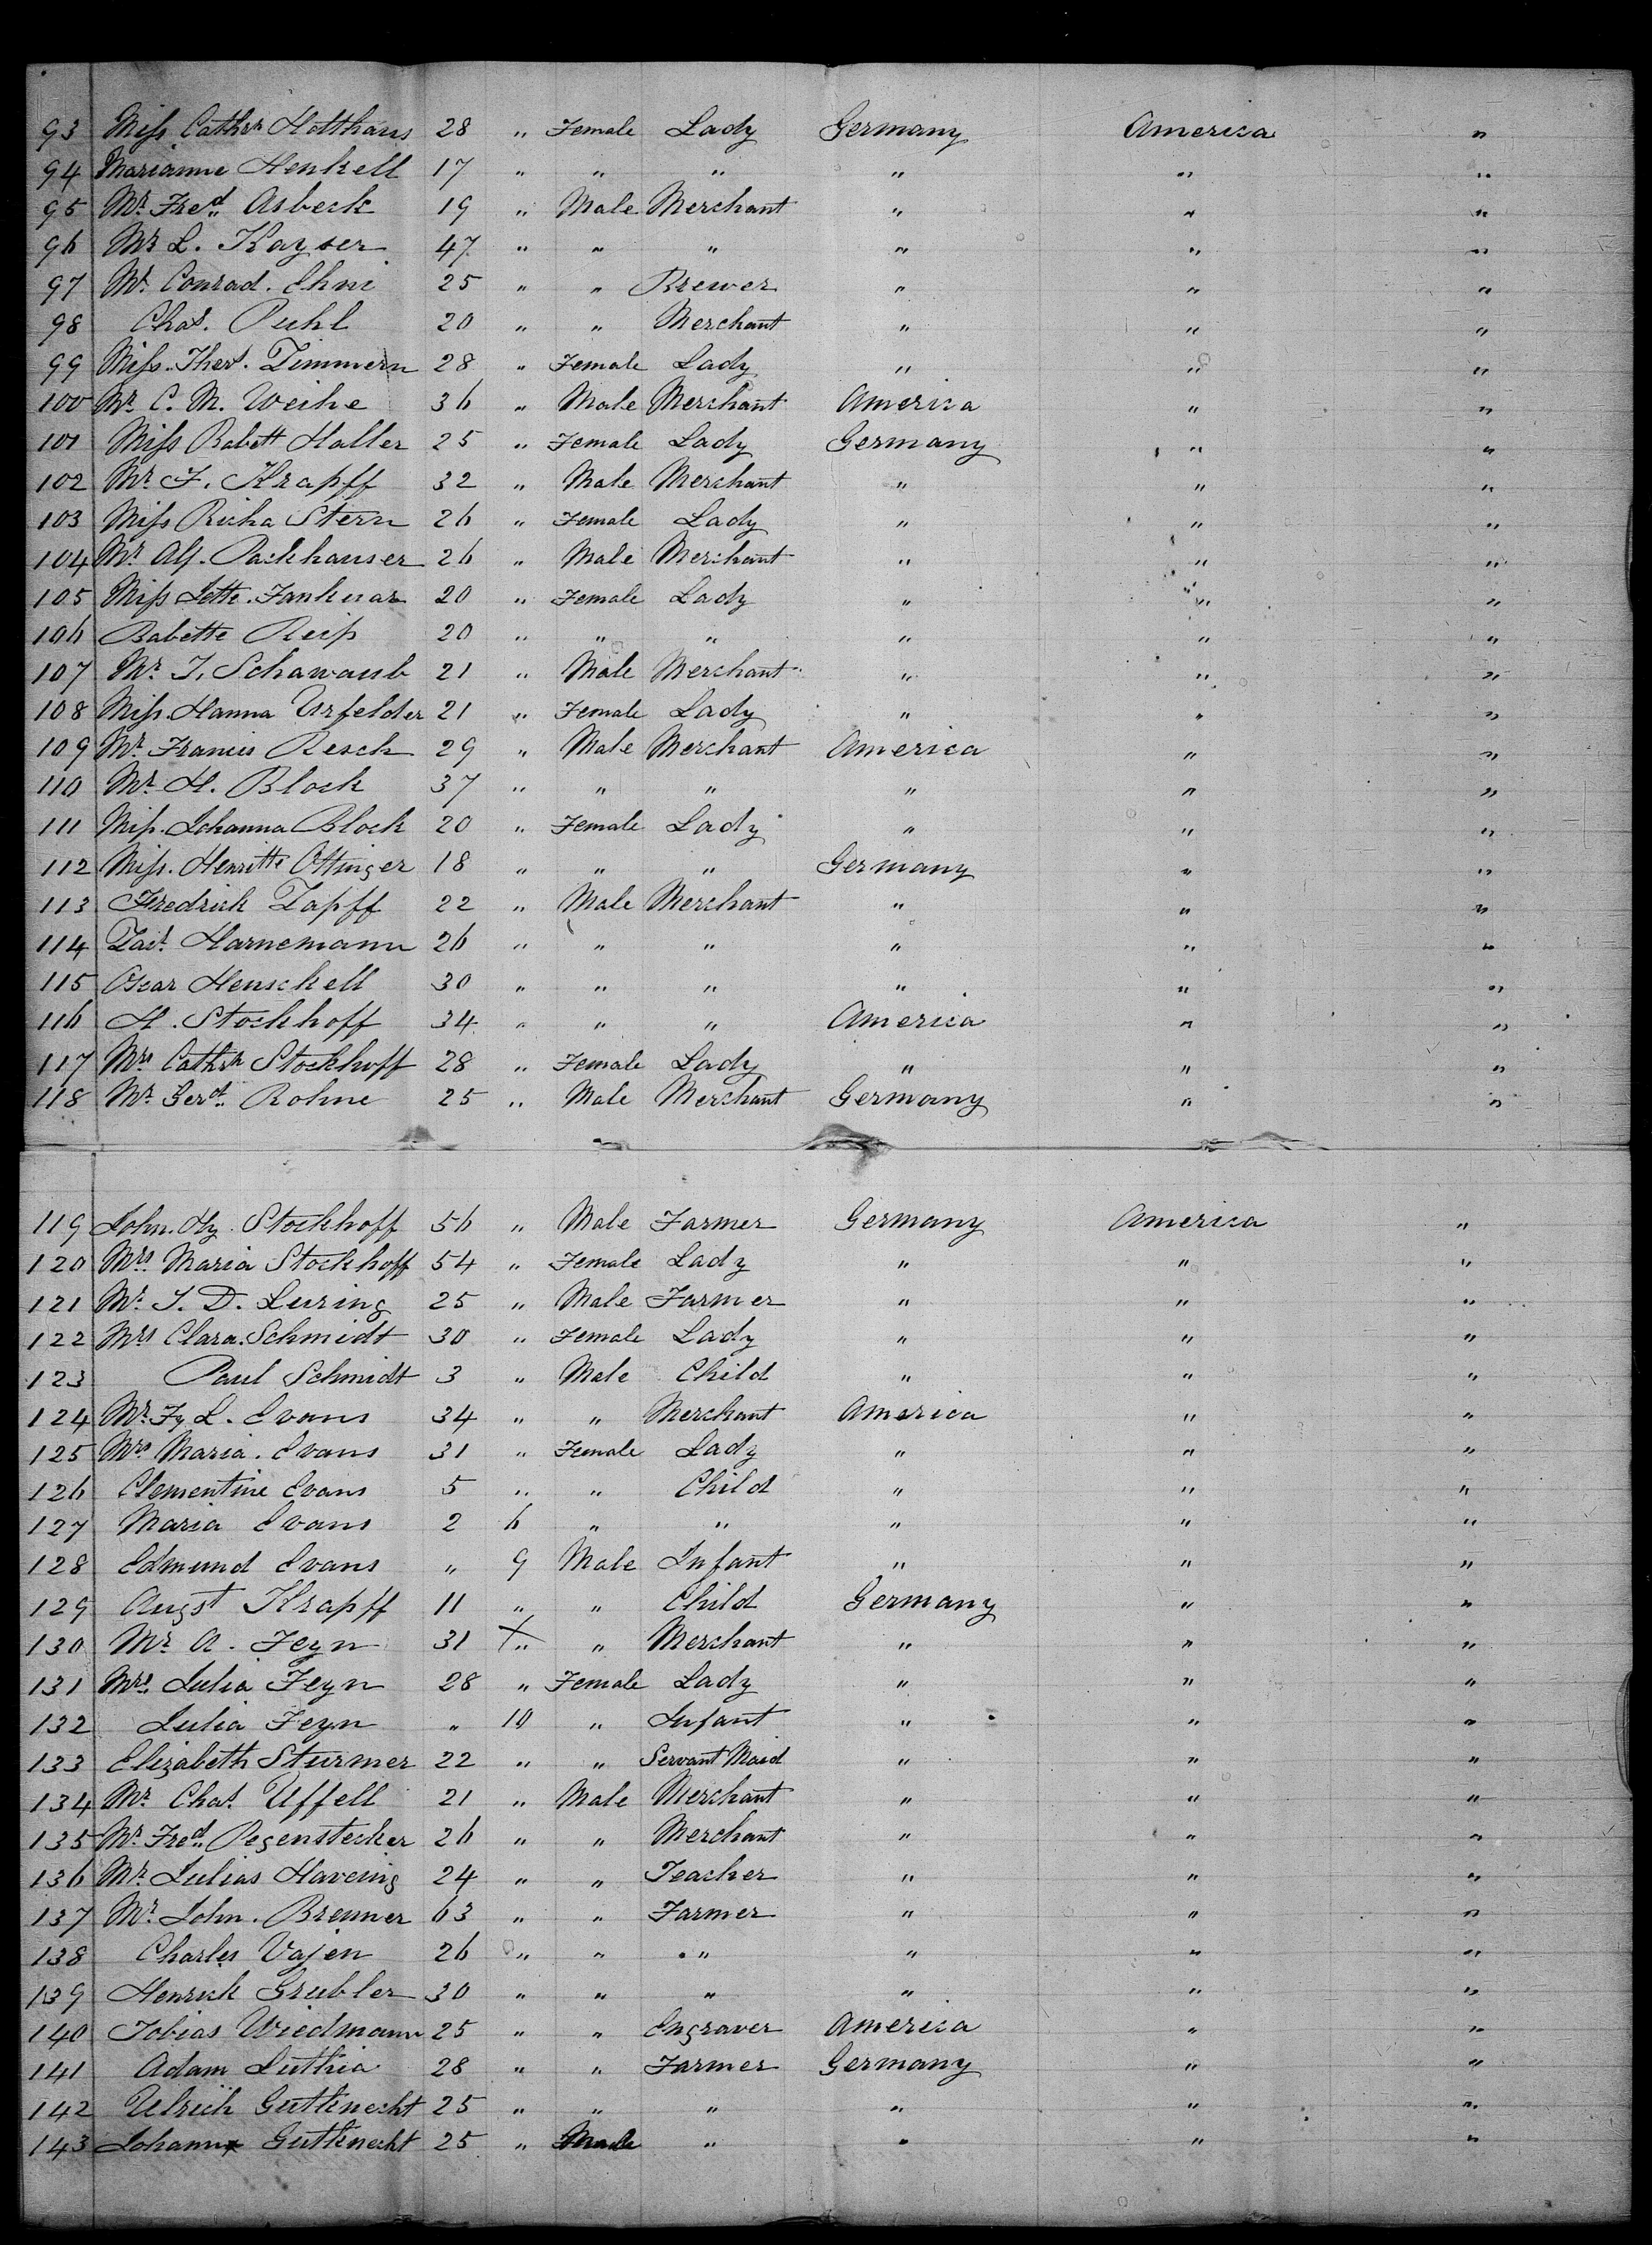 93 Miss Cathrn Hotthaus 28 " Female Lady Germany America "
94 Marianne Henkell 17 " " " " " "
95 Mr. Fred. Asbeck 19 " Male Merchant " " "
96 Mr L. Kayser 47 " " " " " "
97 Mr. Conrad. Ehni 25 " " Brewer " " "
98 Chas. Puhl 20 " " Merchant " " "
99 Miss. Thers. Zimmern 28 " Female Lady " " "
100 Mr. C. M. Weihe 36 " Male Merchant America " "
101 Miss Babett Haller 25 " Female Lady Germany " "
102 Mr. F. Krapff 32 " Male Merchant " " "
103 Miss Richa Stern 26 " Female Lady " " "
104 Mr Alf. Packhauser 26 " Male Merchant " " "
105 Miss Jette. 20 " Female Lady " " "
106 Babette Reiss 20 " " " " " "
107 Mr. J. Schawaub 21 " Male Merchant " " "
108 Miss. Hanna Urfelder 21 " Female Lady " " "
109 Mr. Francis Resch 29 " Male Merchant America " "
110 Mr. H. Block 37 " " " " " "
111 Miss. Johanna Block 20 " Female Lady " " "
112 Miss. Henritte Ottinger 18 " " " Germany " "
113 Fredrick Zapff 22 " Male Merchant " " "
114 Harnemann 26 " " " " " "
115 Oscar Henschell 30 " " " " " "
116 H. Stockhoff 34 " " " America " "
117 Mrs Cathrn Stockhoff 28 " Female Lady " " "
118 Mr. Gerd. Rohne 25 " Male Merchant Germany " "
119 John. Hy. Stockhoff 56 " Male Farmer Germany America "
120 Mrs Maria Stockhoff 54 " Female Lady " " "
121 Mr. J. D. Luring 25 " Male Farmer " " "
122 Mrs Clara. Schmidt 30 " Female Lady " " "
123 Paul Schmidt 3 " Male Child " " "
124 Mr. Fy L. Evans 34 " " Merchant America " "
125 Mrs Maria. Evans 31 " Female Lady " " "
126 Clementine Evans 5 " " Child " " "
127 Maria Evans 2 6 " " " " "
128 Edmund Evans " 9 Male Infant " " "
129 Augst Krapff 11 " " Child Germany " "
130 Mr. A. Feyn 31 X " " Merchant " " "
131 Mrs. Julia Feyn 28 " Female Lady " " "
132 Julia Feyn " 10 " Infant " " "
133 Elizabeth Sturmer 22 " " Servant Maid " " "
134 Mr. Chas. Uffell 21 " Male Merchant " " "
135 Mr. Fred. Regenstecker 26 " " Merchant " " "
136 Mr. Julias Havering 24 " " Teacher " " "
137 Mr. John. Brenner 63 " " Farmer " " "
138 Charles Vajen 26 " " " " " "
139 Henrick Grubler 30 " " " " " "
140 Tobias Wiedmann 25 " " Engraver America " "
141 Adam Luthia 28 " " Farmer Germany " "
142 Ulrich Gutknecht 25 " " " " " "
143 Johann Gutknecht 25 " Male " " " "